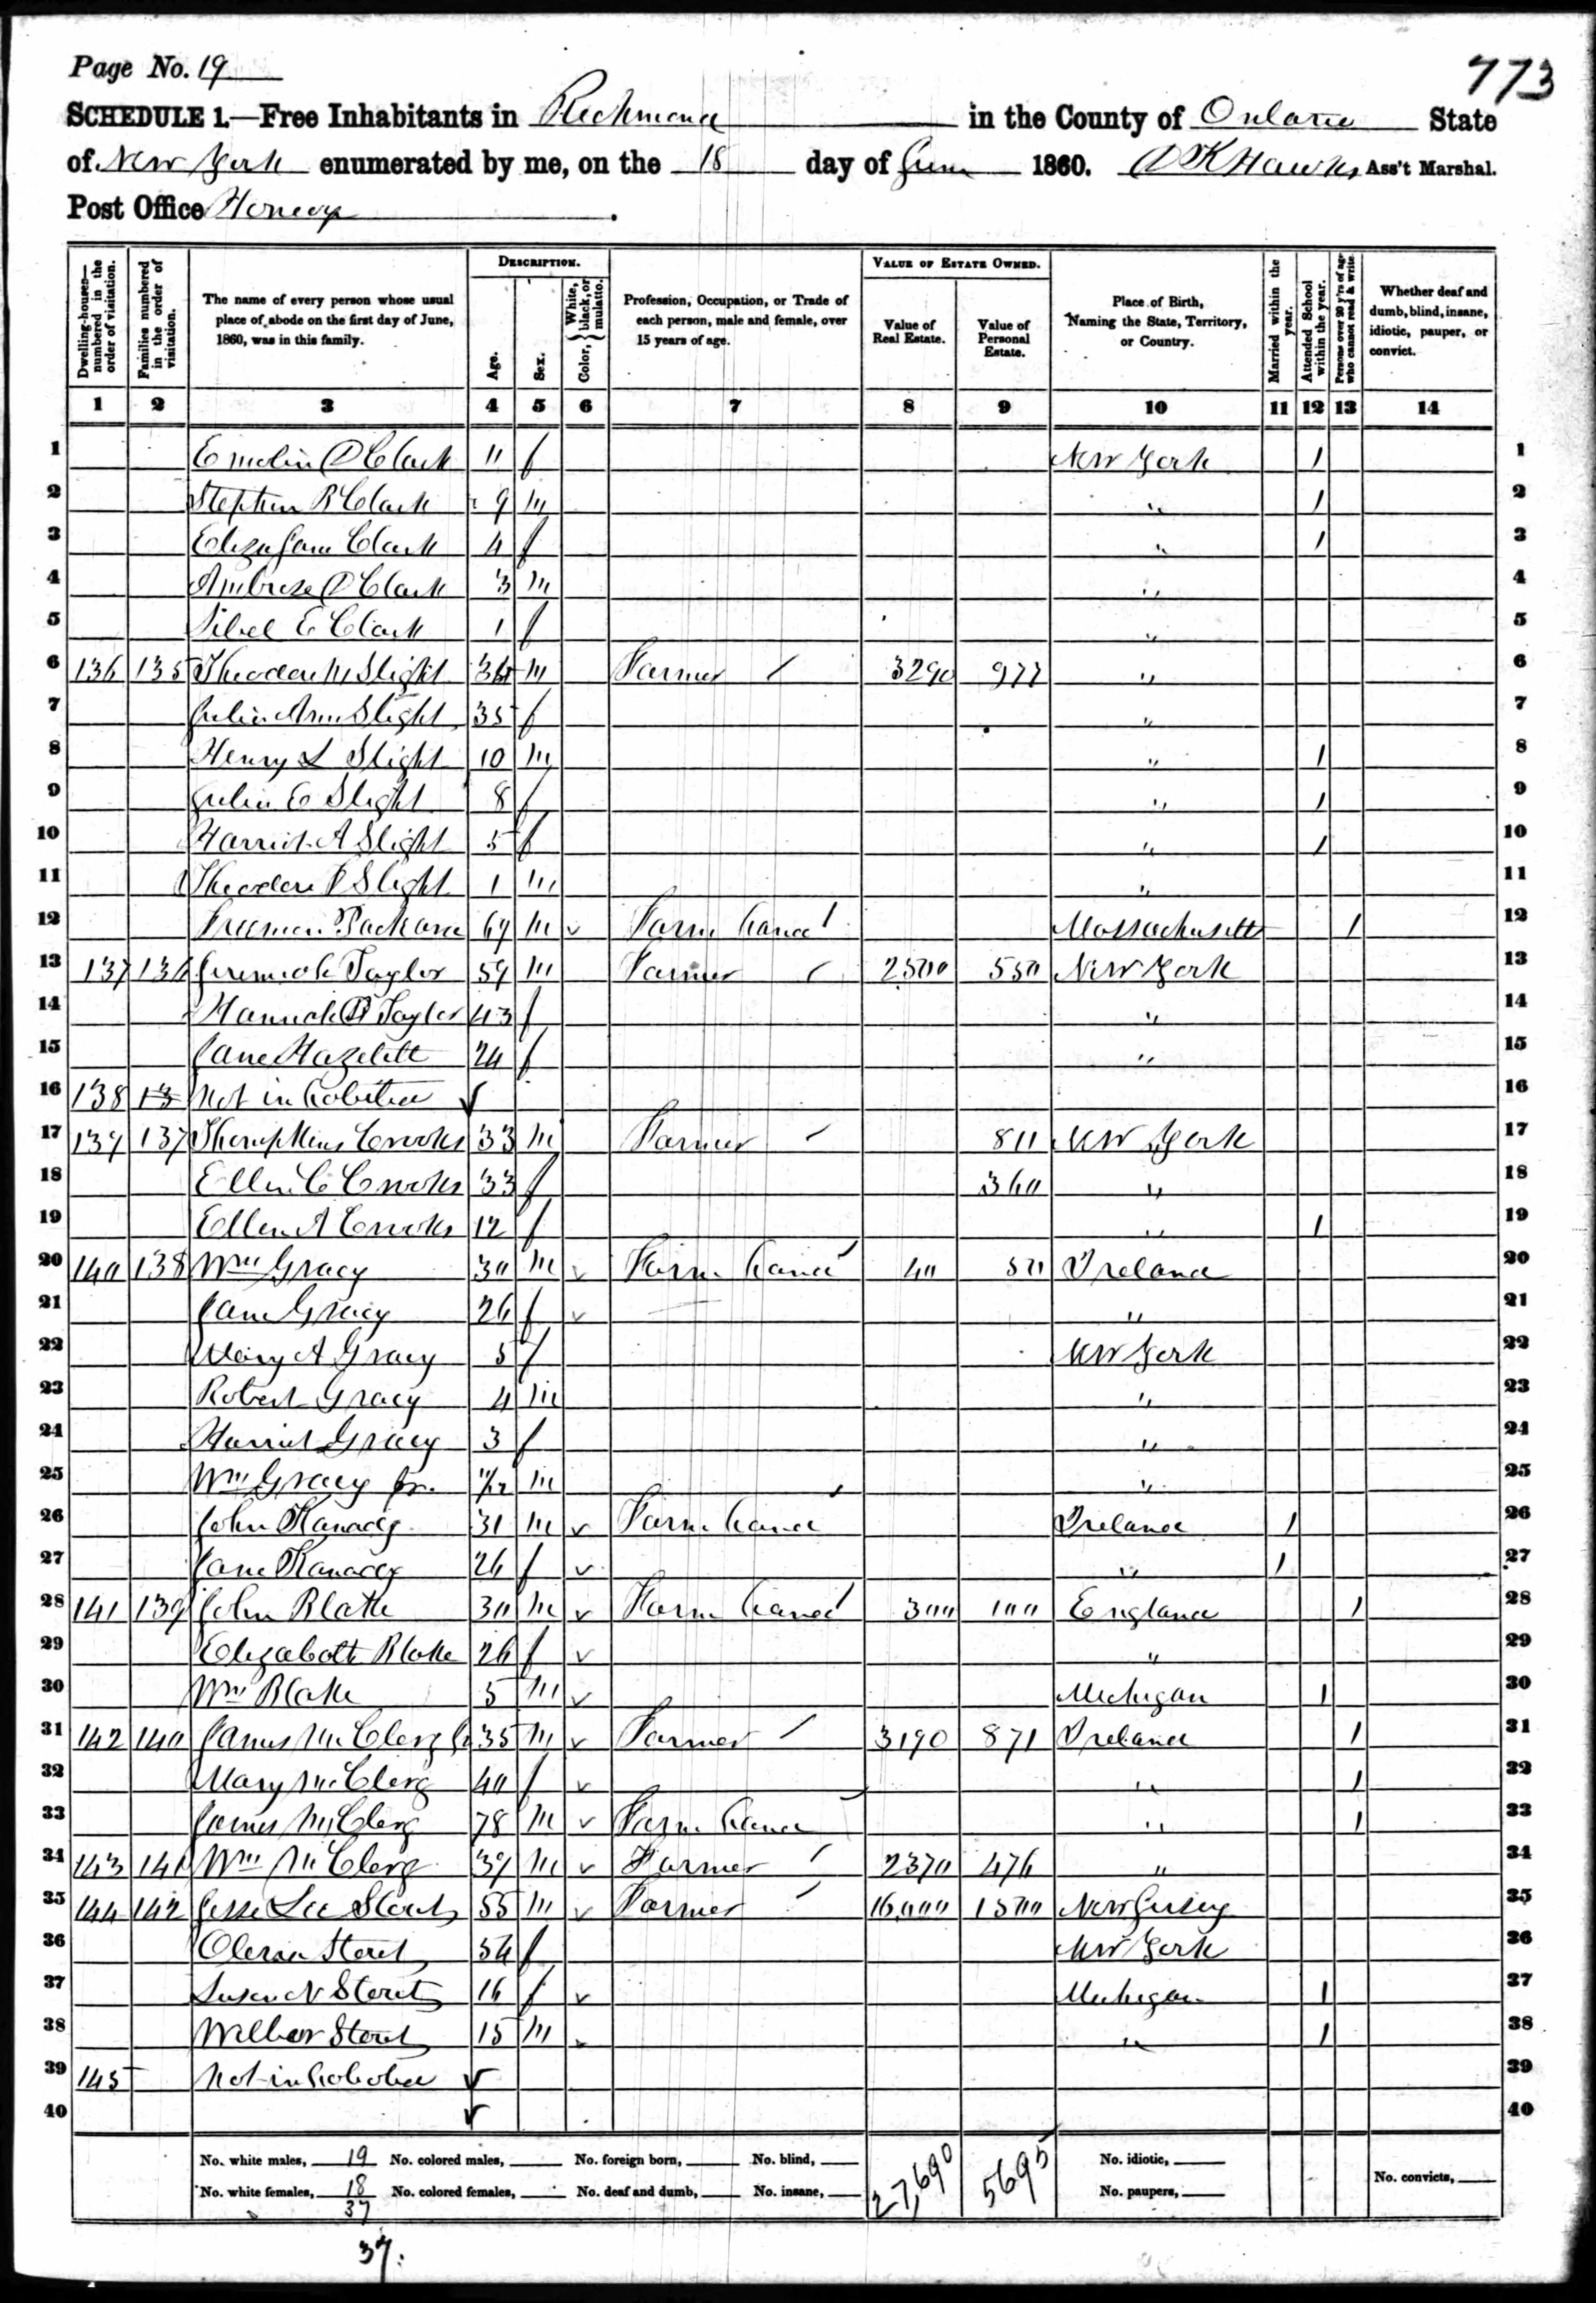 Page No. 19
773
SCHEDULE 1.—Free Inhabitants in Richmond in the County of Ontario State
of New York enumerated by me, on the 18 day of June 1860. Ass't Marshal.
Post Office Honeoye
Dwelling-houses—numbered in the order of visitation.
Families numbered in the order of visitation.
The name of every person whose usual place of abode on the first day of June, 1860, was in this family.
DESCRIPTION.
Age.
Sex.
Color, { White, black, or mulatto.
Profession, Occupation, or Trade of each person, male and female, over 15 years of age.
VALUE OF ESTATE OWNED.
Value of Real Estate.
Value of Personal Estate.
Place of Birth, Naming the State, Territory, or Country.
Married within the year.
Attended School within the year.
Persons over 20 y'rs of age who cannot read & write.
Whether deaf and dumb, blind, insane, idiotic, pauper, or convict.
1 2 3 4 5 6 7 8 9 10 11 12 13 14
1 Clark 11 f New York 1 1
2 Stephen R Clark 9 m " 1 2
3 Eliza Jane Clark 4 f " 1 3
4 Ambrose D Clark 3 m " 4
5 Sibel E Clark 1 f " 5
6 136 135 Theodore M Slight m Farmer / 3290 977 " 6
7 Julia Ann Slight 35 f " 7
8 Henry L Slight 10 m " 1 8
9 Julia E Slight 8 f " 1 9
10 Harriet A Slight 5 f " 1 10
11 Theodore Slight 1 m " 11
12 Freeman Packard 69 m v Farm hand / Massachusetts 1 12
13 137 136 Jeremiah Taylor 59 m Farmer / 2500 550 New York 13
14 Hannah Taylor 43 f " 14
15 Jane Hazelett 24 f " 15
16 138 13 Not inhabited ✓ 16
17 139 137 Thompkins Crooks 33 m Farmer / 800 New York 17
18 Ellen C Crooks 33 f 360 " 18
19 Ellen A Crooks 12 f " 1 19
20 140 138 Wm Gracy 30 m v Farm hand / 40 50 Ireland 20
21 Jane Gracy 26 f v " 21
22 Mary A Gracy 5 f New York 22
23 Robert Gracy 4 m " 23
24 Harriet Gracy 3 f " 24
25 Wm Gracy Jr. 11/12 m " 25
26 John Kanady 31 m v Farm hand / Ireland 1 26
27 Jane Kanady 26 f v " 1 27
28 141 139 John Blake 30 m v Farm hand / 300 100 England 1 28
29 Elizabeth Blake 26 f v " 29
30 Wm Blake 5 m v Michigan 1 30
31 142 140 James McClerg Jr 35 m v Farmer / 3190 871 Ireland 1 31
32 Mary McClerg 40 f v " 1 32
33 James McClerg 78 m v Farm hand " 1 33
34 143 141 Wm McClerg 39 m v Farmer / 2370 476 " 34
35 144 142 Jesse Lee Stout 55 m v Farmer / 16,000 1500 New Jersey 35
36 Stout 54 f New York 36
37 Susan N Stout 16 f v Michigan 1 37
38 Wilber Stout 15 m v " 1 38
39 145 Not inhabited ✓ 39
40 ✓ 40
No. white males, 19 No. colored males, No. foreign born, No. blind, 27,690 5695 No. idiotic,
No. white females, 18 No. colored females, No. deaf and dumb, No. insane, No. paupers, No. convicts,
37
37